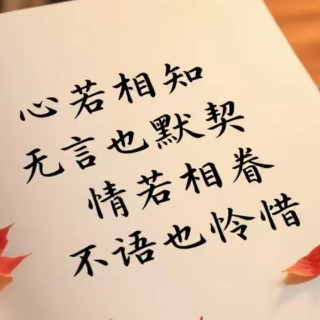 心若相知
无言也默契
情若相眷
不语也怜惜